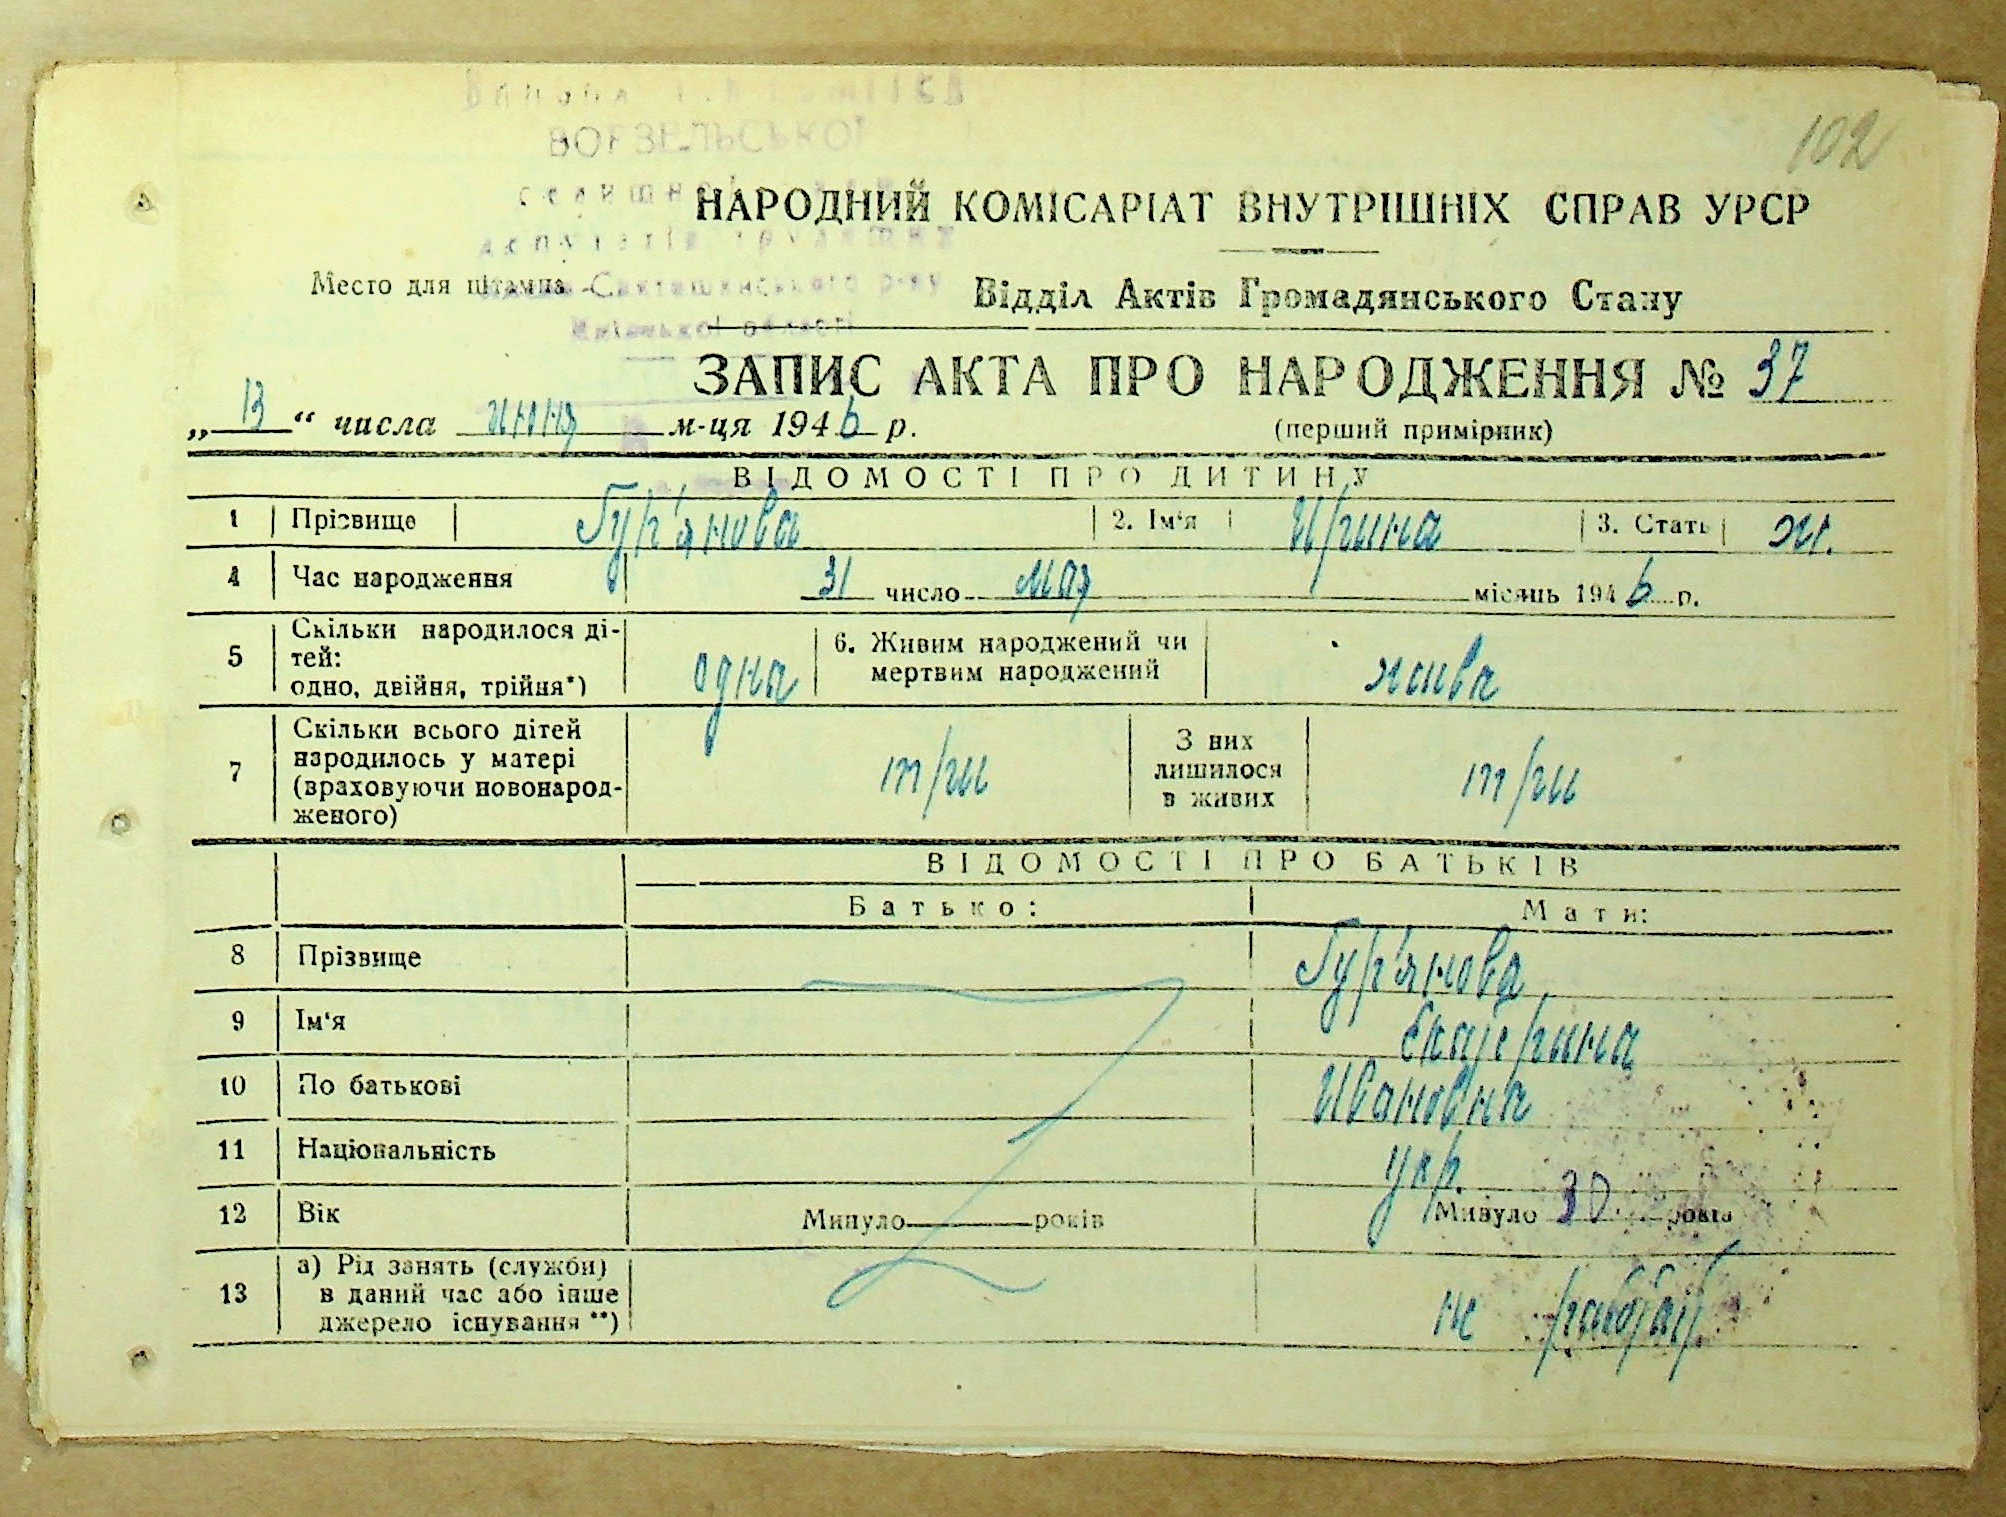 102
ВОРЗЕЛЬСЬКОЇ
НАРОДНИЙ КОМІСАРІАТ ВНУТРІШНІХ СПРАВ УРСР
Место для штампа
р-ну
Київської області
Відділ Актів Громадянського Стану
ЗАПИС АКТА ПРО НАРОДЖЕННЯ № 37
„ 13 “ числа июня м-ця 1946 р. (перший примірник)
ВІДОМОСТІ ПРО ДИТИНУ
1 Прізвище Гур'янова 2. Ім'я Ирина 3. Стать ж.
4 Час народження 31 число мая місяць 1946 р.
5 Скільки народилося ді-
тей:
одно, двійня, трійня*) одна 6. Живим народжений чи
мертвим народжений жива
7 Скільки всього дітей
народилось у матері
(враховуючи новонарод-
женого) три З них
лишилося
в живих три
ВІДОМОСТІ ПРО БАТЬКІВ
Батько: Мати:
8 Прізвище Гур'янова
9 Ім'я Екатерина
10 По батькові Ивановна
11 Національність укр.
12 Вік Минуло років Минуло 30 років
13 а) Рід занять (служби)
в даний час або інше
джерело існування **) не работает